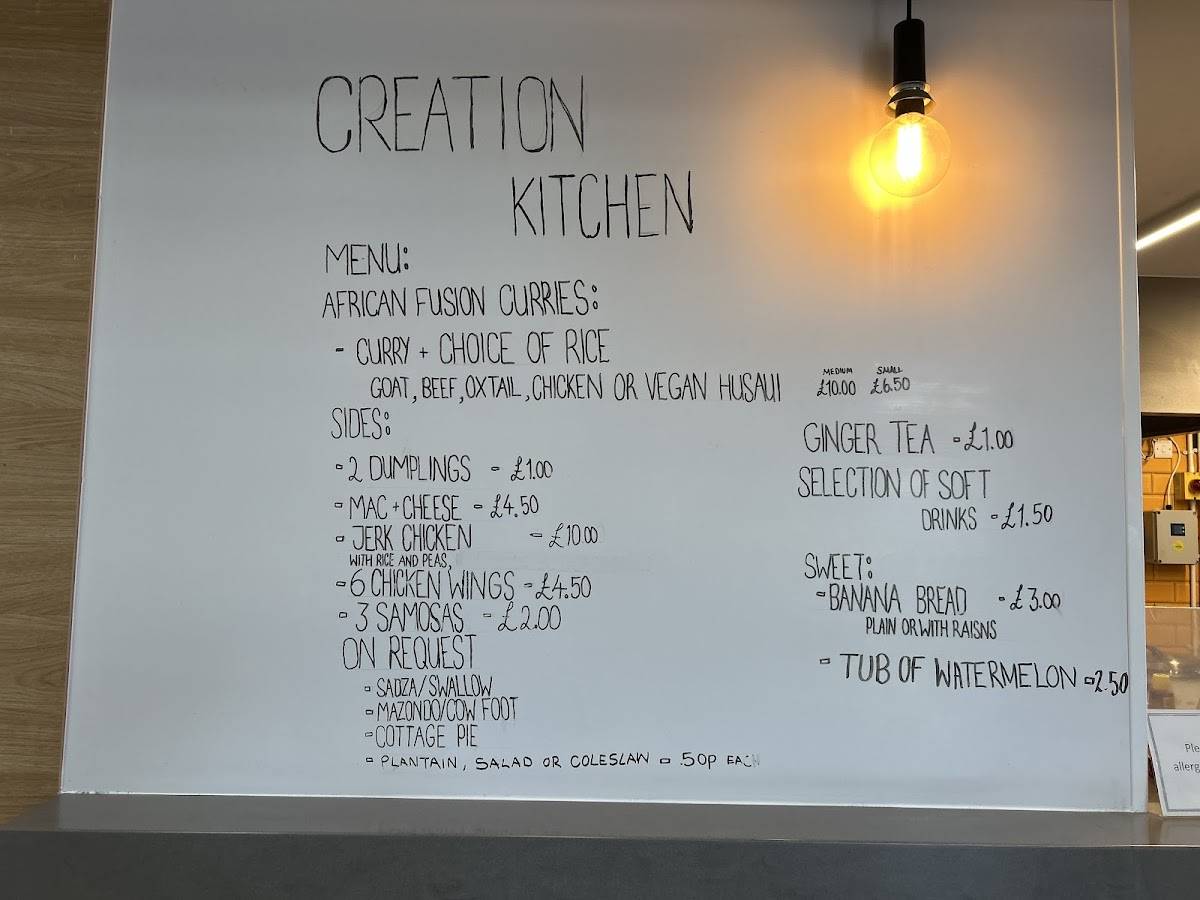 CREATION
KITCHEN
MENU:
AFRICAN FUSION CURRIES:
- CURRY + CHOICE OF RICE
GOAT, BEEF, OXTAIL, CHICKEN OR VEGAN HUSAUI
MEDIUM SMALL
£10.00 £6.50
SIDES:
- 2 DUMPLINGS - £1.00
- MAC + CHEESE - £4.50
- JERK CHICKEN - £10.00
WITH RICE AND PEAS,
- 6 CHICKEN WINGS - £4.50
- 3 SAMOSAS - £2.00
ON REQUEST
- SADZA/SWALLOW
- MAZONDO/COW FOOT
- COTTAGE PIE
- PLANTAIN, SALAD OR COLESLAW - .50P EACH
GINGER TEA - £1.00
SELECTION OF SOFT
DRINKS - £1.50
SWEET:
- BANANA BREAD - £3.00
PLAIN OR WITH RAISNS
- TUB OF WATERMELON - 2.50
Ple
allerg